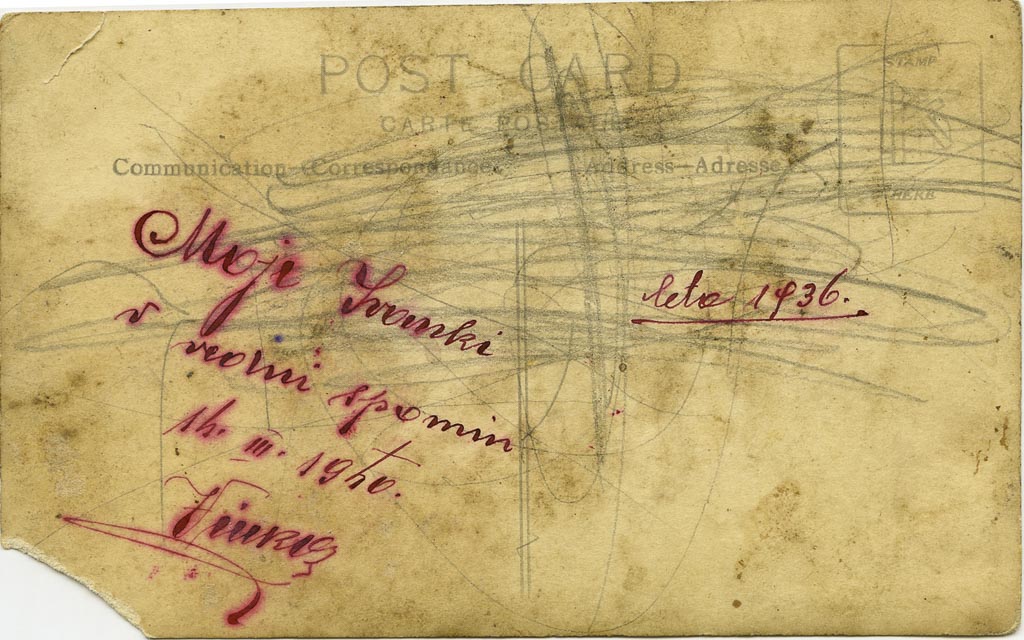 POST CARD
CARTE POSTALE
Communication-Correspondance
Address-Adresse
STAMP
HERE
Moji Ivanki
v
spomin
14. III. 1940.
leto 1936.